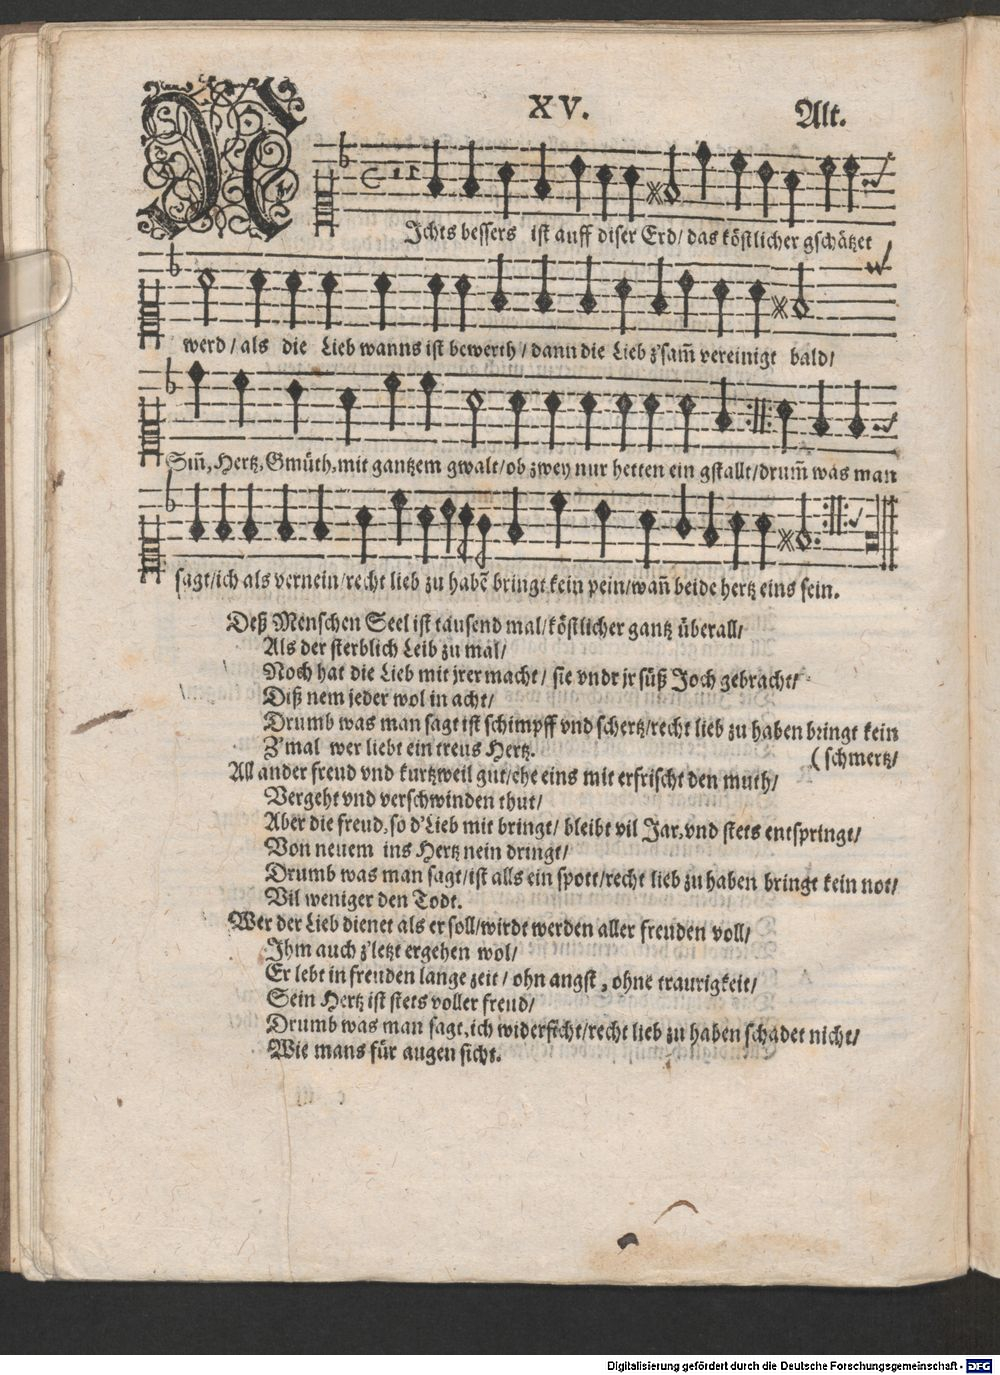 XV.
Alt.
NIchts bessers ist auff diser Erd/ das köstlicher gschätzet
werd/ als die Lieb wanns ist bewerth/ dann die Lieb z'sam̃ vereinigt bald/
Siñ, Hertz, Gmüth, mit gantzem gwalt/ ob zwey nur hetten ein gstallt/ drum̃ was man
sagt/ ich als vernein/ recht lieb zu habẽ bringt kein pein/ wañ beide hertz eins sein.
Deß Menschen Seel ist tausend mal/ köstlicher gantz überall/
Als der sterblich Leib zu mal/
Noch hat die Lieb mit jrer macht/ sie vndr jr süß Joch gebracht/
Diß nem jeder wol in acht/
Drumb was man sagt ist schimpff vnd schertz/ recht lieb zu haben bringt kein
Z'mal wer liebt ein treus Hertz. (schmertz/
All ander freud vnd kurtzweil gut/ ehe eins mit erfrischt den muth/
Vergeht vnd verschwinden thut/
Aber die freud, so d'Lieb mit bringt/ bleibt vil Jar, vnd stets entspringt/
Von neuem ins Hertz nein dringt/
Drumb was man sagt/ ist alls ein spott/ recht lieb zu haben bringt kein not/
Vil weniger den Todt.
Wer der Lieb dienet als er soll/ wirdt werden aller freuden voll/
Ihm auch z'letzt ergehen wol/
Er lebt in freuden lange zeit/ ohn angst, ohne traurigkeit/
Sein Hertz ist stets voller freud/
Drumb was man sagt, ich widerficht/ recht lieb zu haben schadet nicht/
Wie mans für augen sicht.
Digitalisierung gefördert durch die Deutsche Forschungsgemeinschaft - DFG